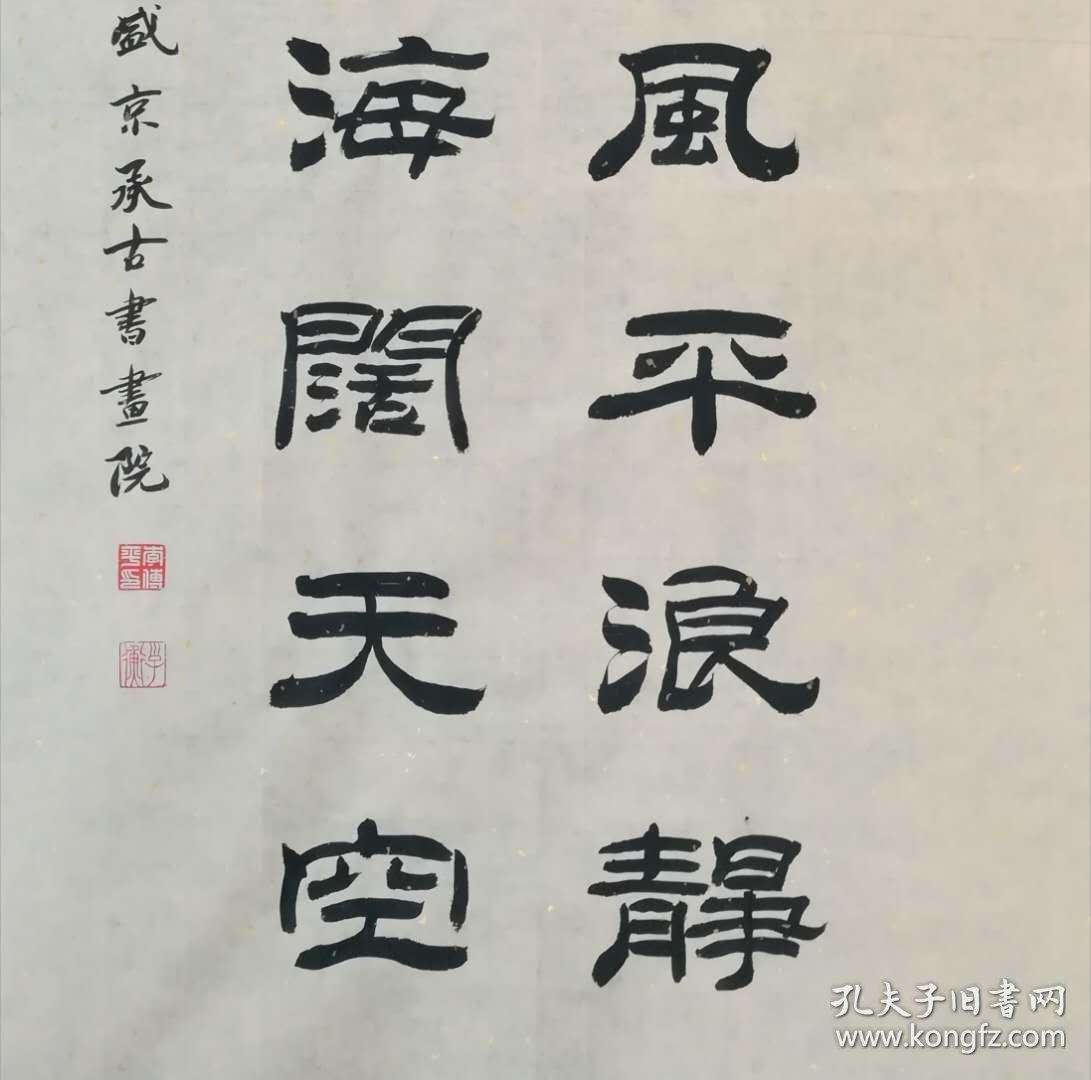 風平浪靜
海闊天空
盛京承古書畫院
孔夫子旧书网
www.kongfz.com